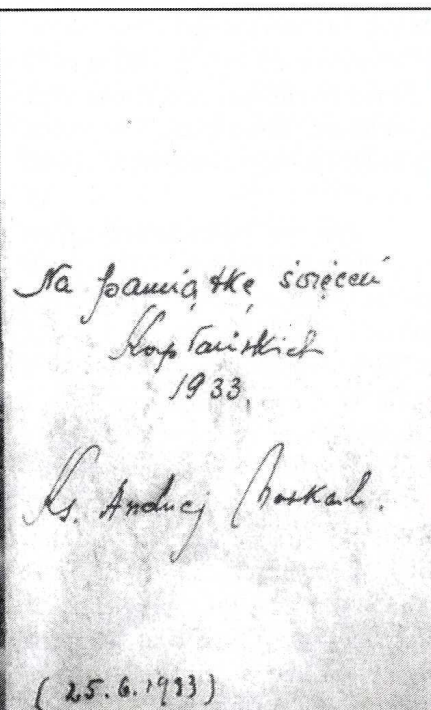 Na pamiątkę święceń
Kapłańskich
1933.
Ks. Andrzej
(25.6.1933)